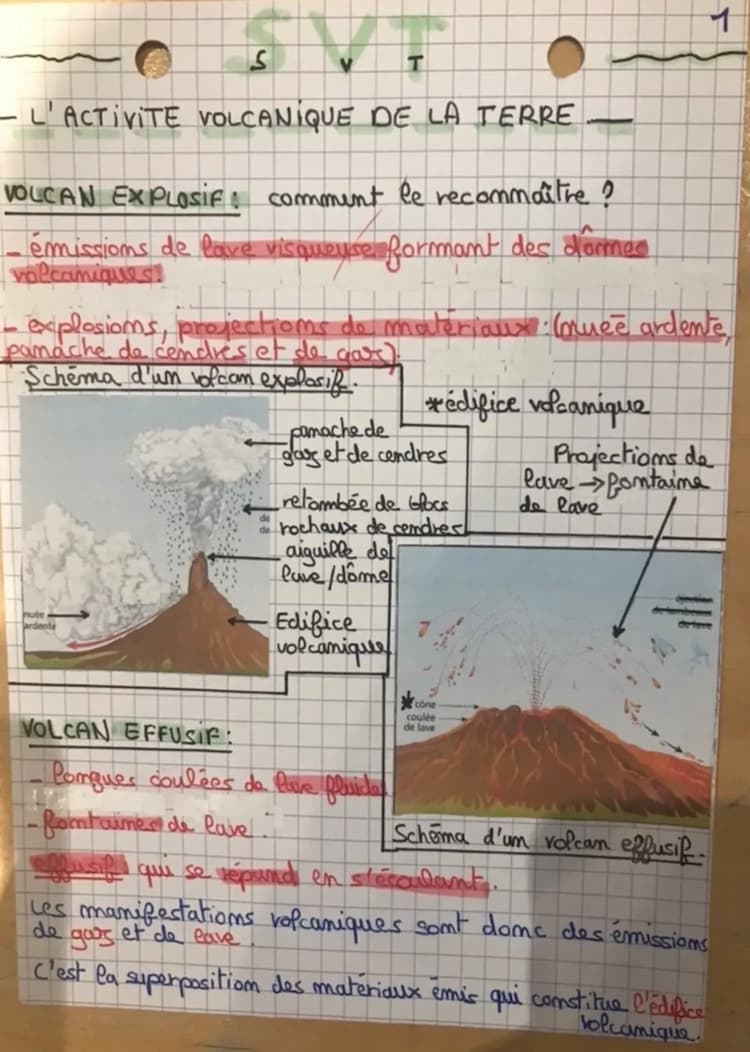 1
SVT
S V T
- L'ACTIVITE VOLCANIQUE DE LA TERRE -
VOLCAN EXPLOSIF : comment le reconnaître ?
- émissions de lave visqueuse formant des dômes
volcaniques.
- explosions, projections de matériaux : (nuée ardente,
panache de cendres et de gas).
Schéma d'un volcan explosif.
panache de
gaz et de cendres
retombée de blocs
de
de
rochaux de cendres
aiguille de
lave/dôme
Edifice
volcanique
nuée
ardente
*édifice volcanique
Projections de
lave → fontaine
de lave
* cône
coulée
de lave
Schéma d'un volcan effusif.
VOLCAN EFFUSIF :
- longues coulées de lave fluide
- fontaines de lave.
effusif qui se répand en s'écoulant.
Les manifestations volcaniques sont donc des émissions
de gaz et de lave.
C'est la superposition des matériaux émis qui constitue l'édifice
volcanique.